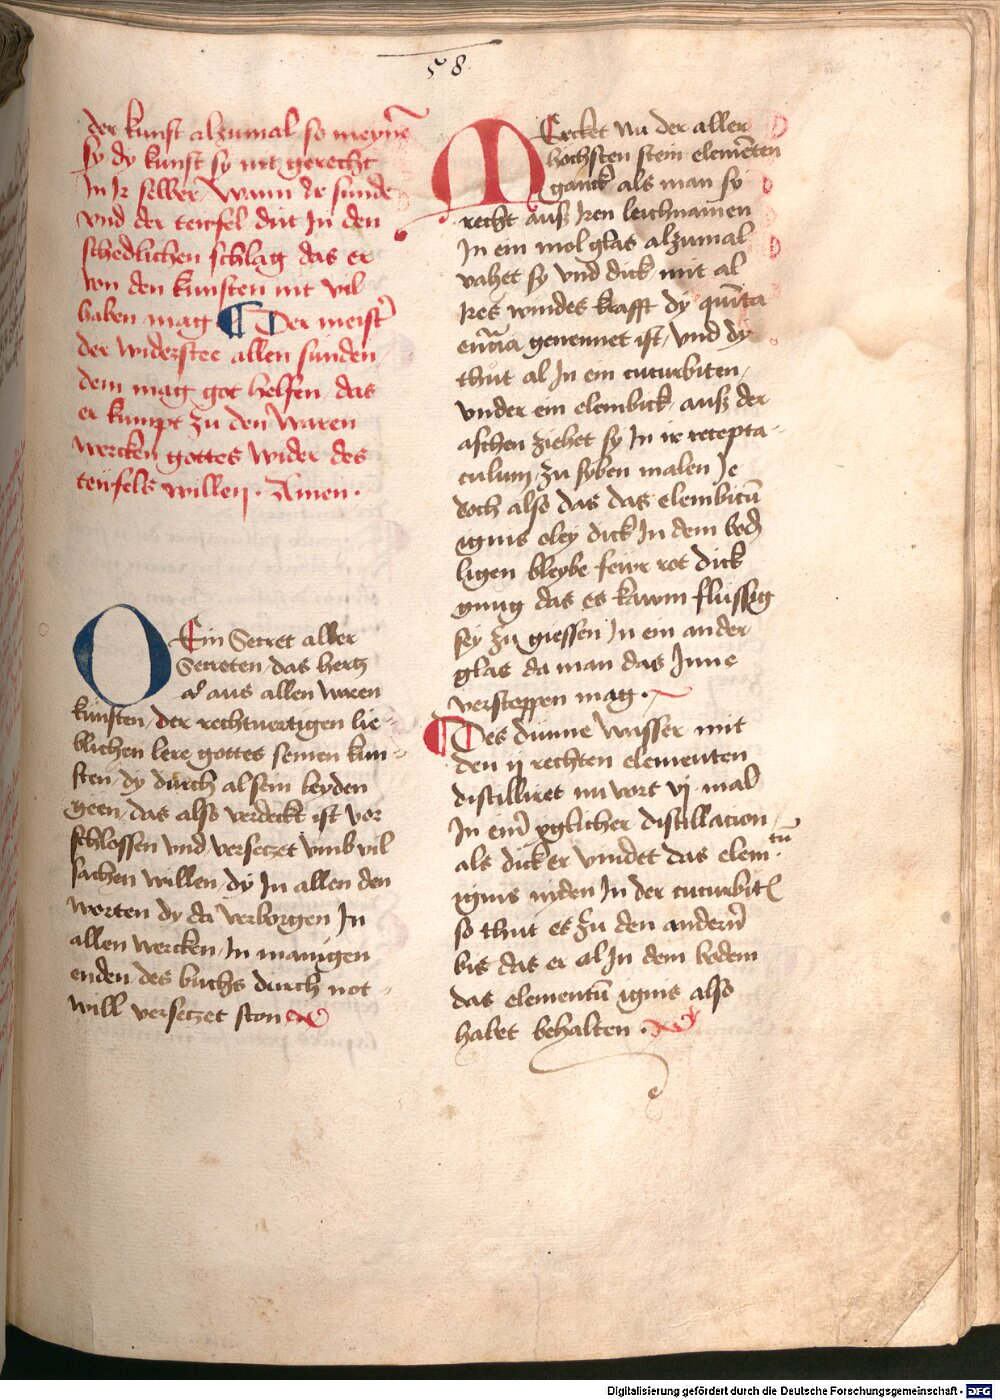 58
der kunst alzumal so meynē
sy dy kunst sy nit gerecht
In Ir selber Wann Ir sunde
vnd der teufel dut In den
schedlichen schlag das er
von den kunsten nit vil
haben mag ¶ Der meist
der widerstee allen sunden
dem mag got helfen das
er kumpt zu den Waren
wercken gottes wider des
teufels willen . Amen .
O Ein Secret aller
Secreten das hertz
aus allen waren
kunsten der rechtuertigen lie-
blichen lere gottes seinen kun-
sten dy durch al sein leyden
geen das also verdeckt ist ver
schlossen vnd versetzet vmb vil
sachen willen dy In allen den
worten dy da verborgen In
allen wercken In manigen
enden des buchs durch not-
will versetzet ston
MErcket Nu der aller
hochsten stein elemēten
ganck als man sy
recht auß Iren leichnamen
In ein mol glas alzumal
vahet sy vnd dick mit al
Ires windes krafft dy quīta
genennet ist vnd dy
thut al In ein cucurbiten
vnder ein elembick auß der
aschen ziehet sy In ir recepta-
culum zu syben malen Je
doch also das das elembitū
ignis oley dick In dem bod
ligen bleybe feür rot dick
gnug das es kawm flussig
sey zu giessen In ein ander
glas da man das Inne
verstoppen mag .
¶ Des dünne wasser mit
den ij rechten elementen
distilliret nu vort vj mal
In eim yglicher distillacion
als dick er vindet das elem.tū
ignis nyden In der cucurbit
so thut es zu den andern
bis das er al In dem bodem
das elementū ignis also
habet behalten .
Digitalisierung gefördert durch die Deutsche Forschungsgemeinschaft - DFG